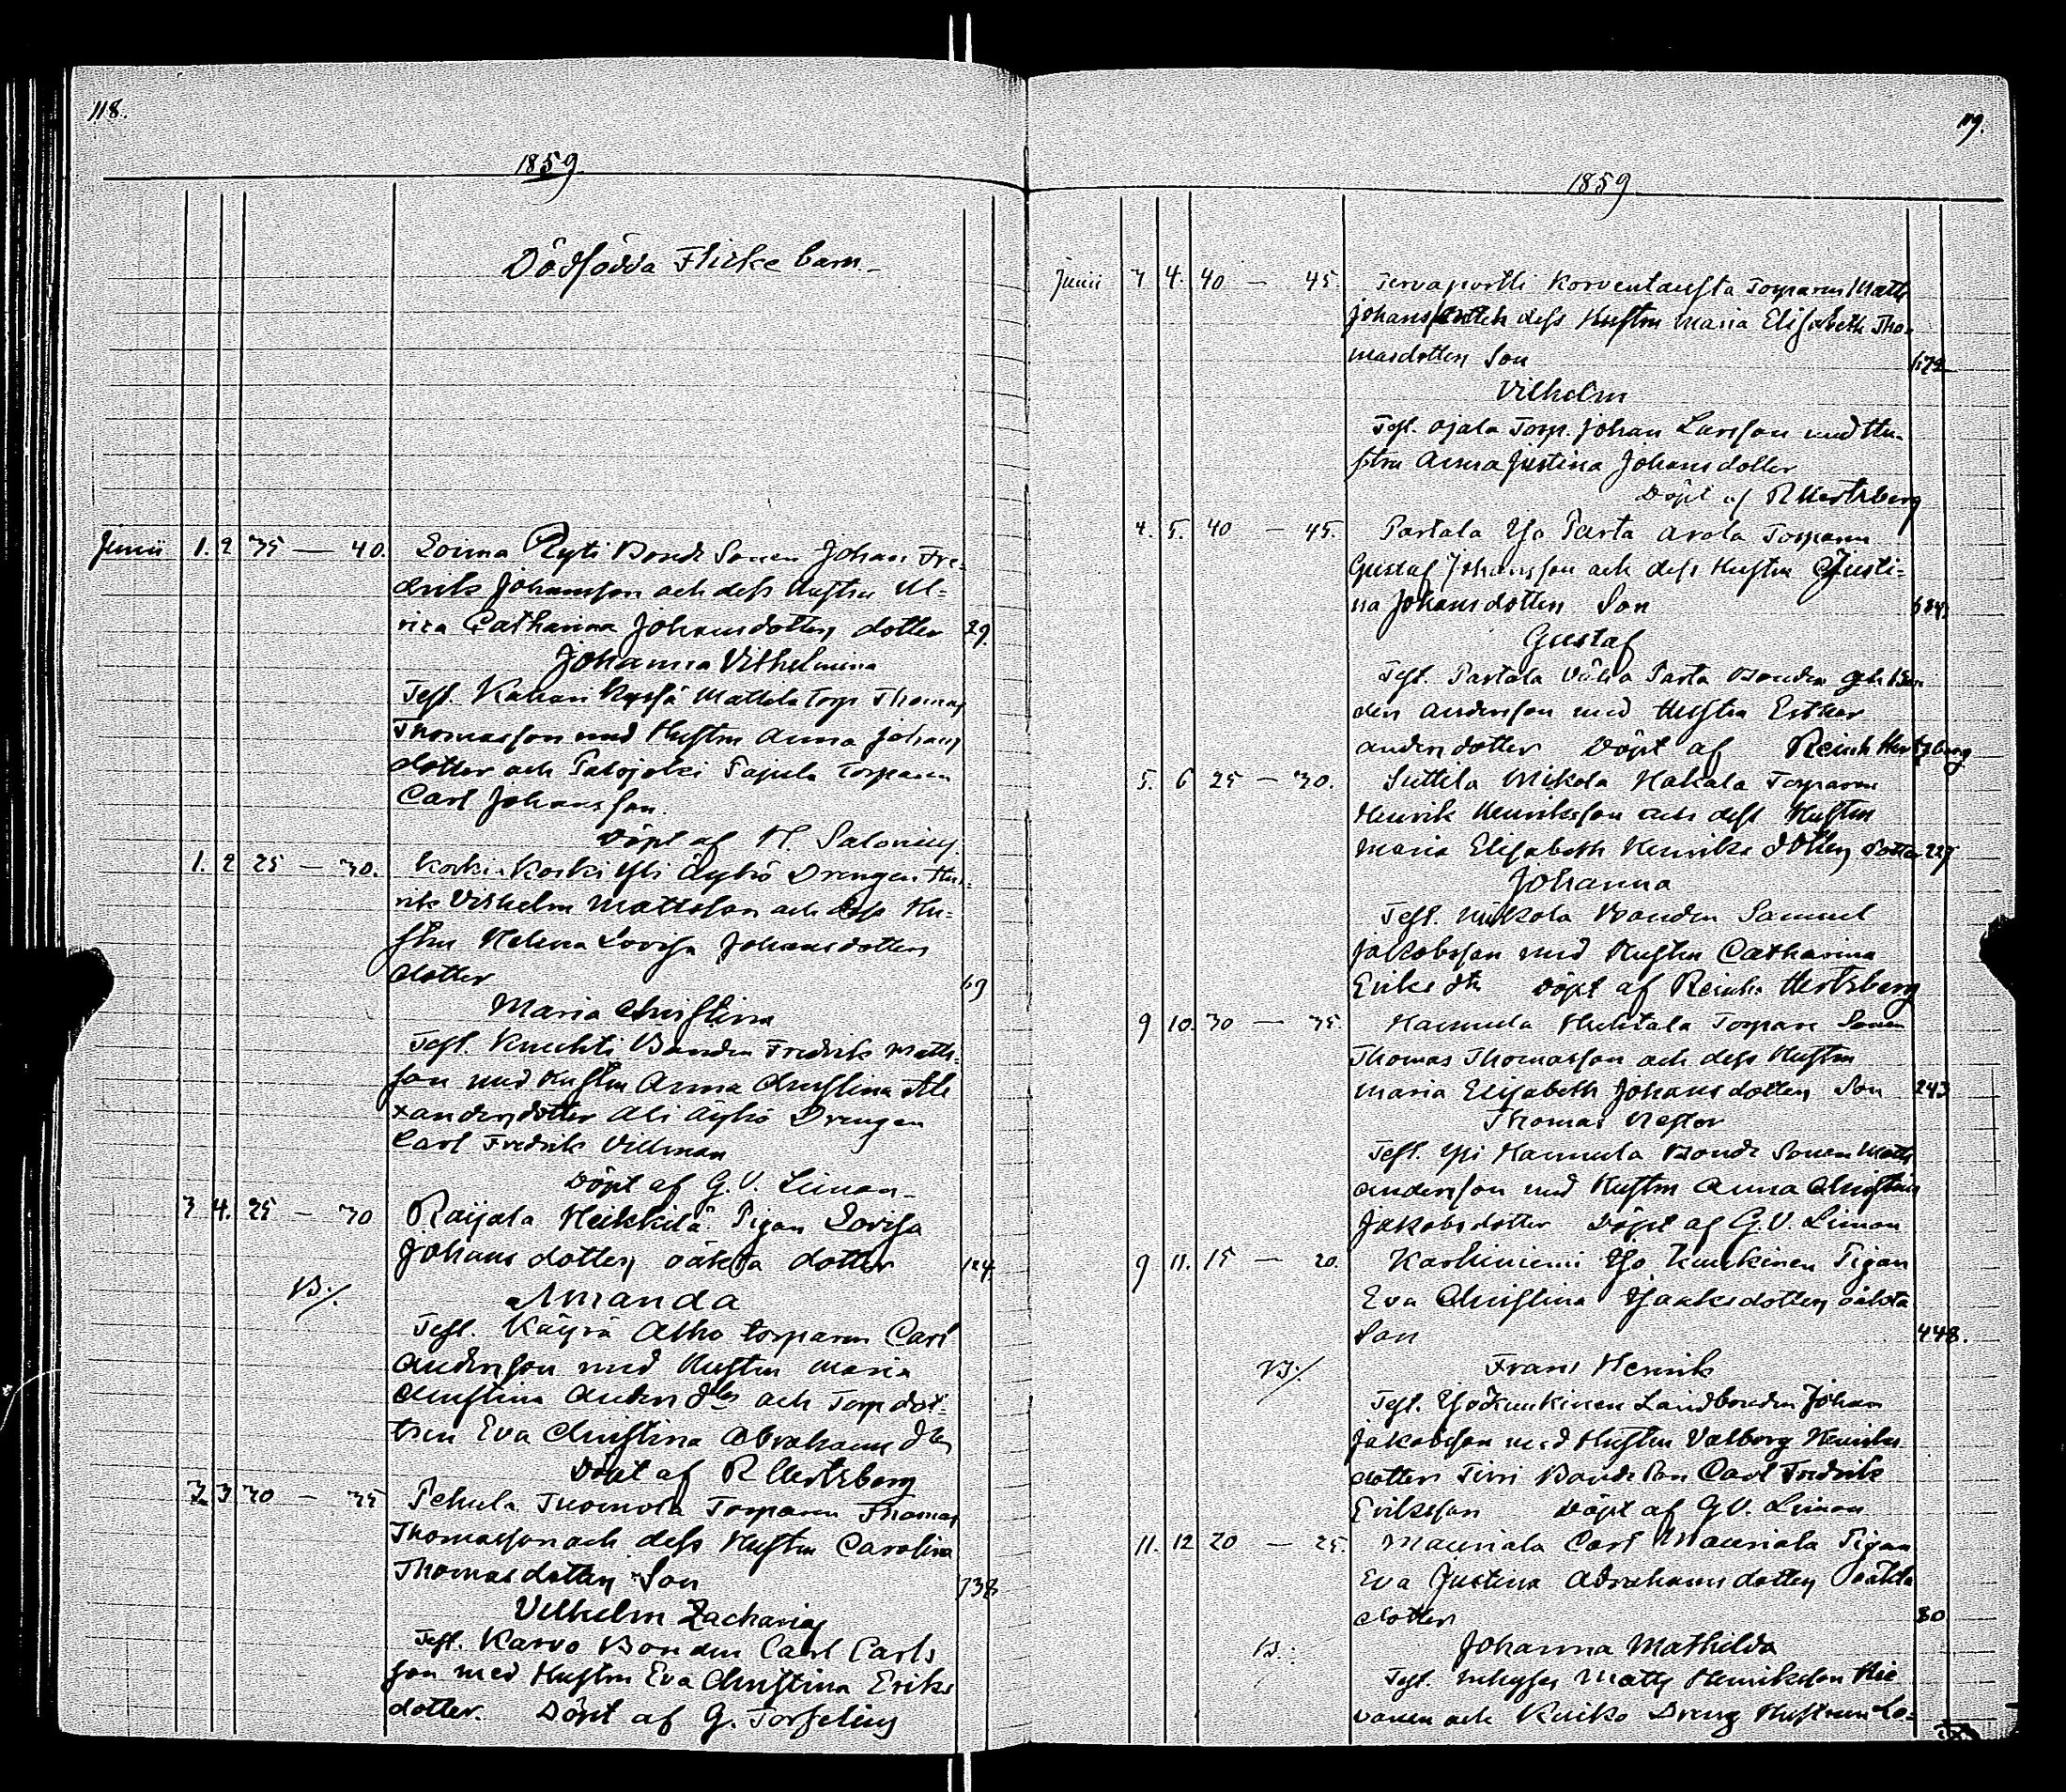 118.
1859
Dödfödda Flickebarn.
Junii 1. 2 35 — 40. Loima Ryti Bonde Sonen Johan Fre-
drik Johansson och dess Hustru Ul-
rica Catharina Johansdotters dotter 29.
Johanna Vilhelmina
Test. Mattila Torp. Thomas
Thomasson med Hustru Anna Johans
dotter och Palojoki Pajula Torparen
Carl Johansson.
Döpt af H. Salonius.
1. 2 25 — 30. Koski Koski Yli Äyhö Drengen Hen-
rik Vilhelm Mattsson och dess Hu-
stru Helena Lovisa Johansdotters
dotter 69
Maria Christina
Test. Knuhti Bonden Fredrik Matts-
son med Hustru Anna Christina Ale
xandersdotter Ali Äyhö Drengen
Carl Fredrik Villman
Döpt af G. V. Liman
3 4. 25 — 30 Raijala Heikkilä Pigan Lovisa
Johansdotters oäkta dotter 124.
Amanda
Test. Käyrä Alho torparen Carl
Andersson med Hustru Maria
Christina Anders dtr och Torp dot-
tren Eva Christina Abrahams dtr
Döpt af R Hertzberg
3 3 30 — 35 Pehula Tuomola Torparen Thomas
Thomasson och dess Hustru Carolina
Thomasdotters Son 738
Vilhelm Zacharias
Test. Karvo Bonden Carl Carls
son med Hustru Eva Christina Eriks
dotter. Döpt af G. Torselius
119.
1859
Junii 3 4. 40 — 45. Tervaportti Korventausta Torparen Matts
Johansson och dess Hustru Maria Elisabeth Tho-
masdotters Son 672
Vilhelm
Test. Ojala Torp. Johan Larsson med Hu-
stru Anna Justina Johansdotter
Döpt af R Hertzberg
4. 5. 40 — 45. Partala Yso Parta Arola Torparen
Gustaf Johansson och dess Hustru Justi-
na Johansdotters Son
Gustaf
Test. Partala Vähä Parta Bonden
Andersson med Hustru Esther
Andersdotter Döpt af Reinh Hertzberg
5. 6 25 — 30. Suttila Mikola Hakala Torparen
Henrik Henriksson och dess Hustru
Maria Elisabeth Henriksdotters dotter 227
Johanna
Test. Mikola Bonden Samuel
Jakobsson med Hustru Catharina
Eriks dtr Döpt af Reinh. Hertzberg
9 10. 30 — 35. Hannula Huhtala Torpare Sonen
Thomas Thomasson och dess Hustru
Maria Elisabeth Johansdotters Son 243
Thomas Nestor
Test. Ypi Hannula Bonde Sonen Matts
Andersson med Hustru Anna Christina
Jakobsdotter Döpt af G. V. Liman
9 11. 15 — 20. Karhiniemi Yso Kunkinen Pigan
Eva Christina Isaksdotters oäkta
Son 448.
Frans Henrik
Test. Yso Kunkinen Landbonden Johan
Jakobsson med Hustru Valborg Henriks
dotter Tirri Bonde Son Carl Fredrik
Eriksson Döpt af G V. Liman
11. 12 20 — 25. Mauriala Carl Mauriala Pigan
Eva Justina Abrahamsdotters oäkta
dotter 80
Johanna Mathilda
Test. Inhyses Matts Henriksson Hie
vanen och Kuiko Dreng Hustrun Lo-